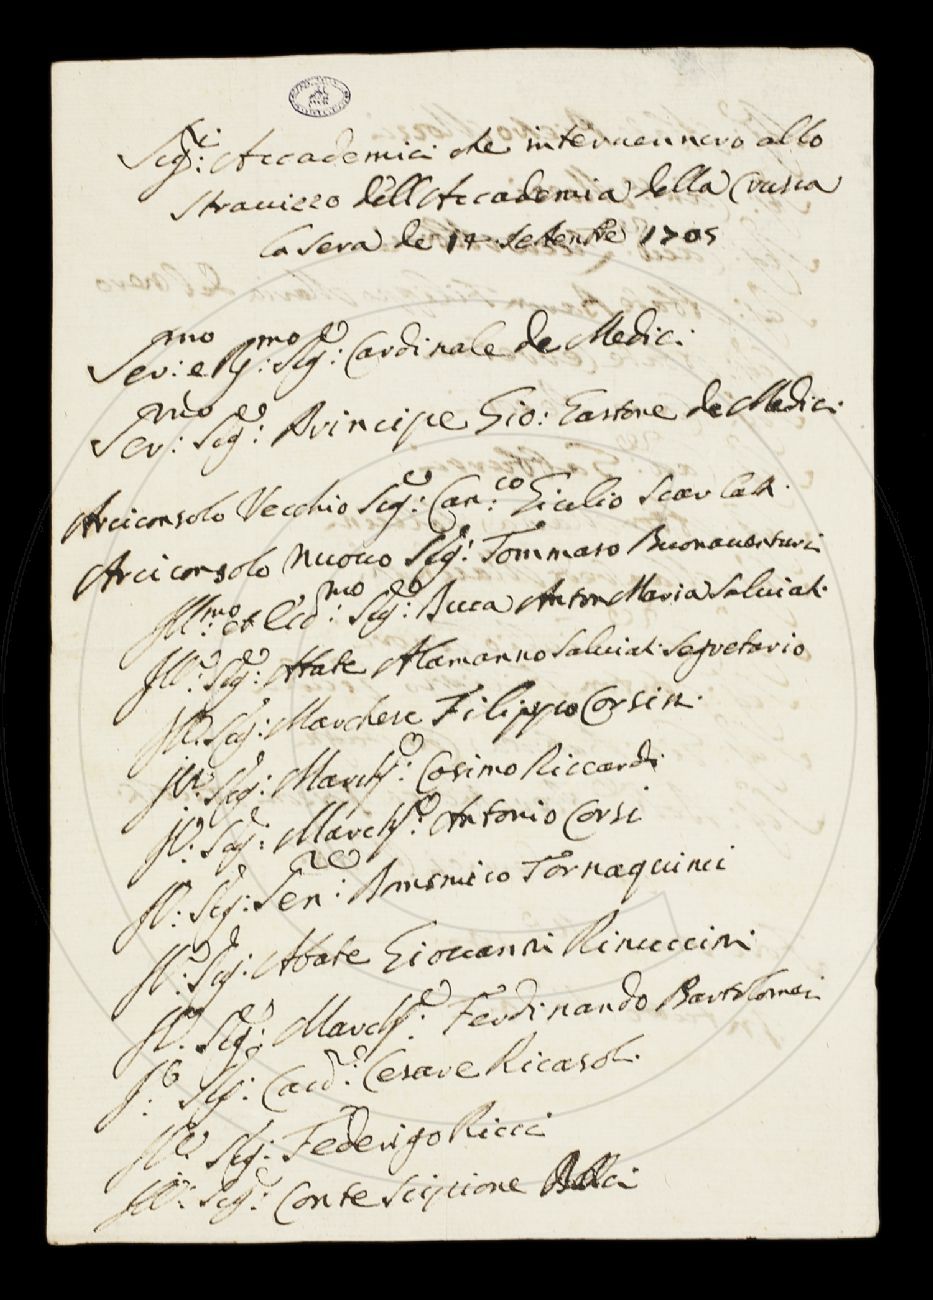 Sigri: Accademici che interuennero allo
strauizzo dell'Accademia della Crusca
la sera de 14 Settembre 1705
Ser:mo e R:mo Sig:e Cardinale de Medici
Ser:mo Sig:e Principe Gio: Gastone de Medici
Arciconsolo Vecchio Sig:e Can:co Giulio Scarlatti
Arciconsolo Nuouo Sig: Tommaso Buonauenturi
Ill:mo et Ecc:mo Sig:e Duca Anton Maria Saluiati
Ill:e Sig:e Abate Alamanno Saluiati Segretario
Ill: Sig: Marchese Filippo Corsini
Ill:e Sig: March:e Cosimo Riccardi
Il: Sig: March:e Antonio Corsi
Il: Sig: Sen:re Domenico Tornaquinci
Il: Sig: Abate Giouanni Rinuccini
Ill: Sig:e March:e Ferdinando Bartolomei
Il: Sig: Cau:re Cesare Ricasoli
Ill:e Sig: Federigo Ricci
Ill: Sig:e Conte Scipione